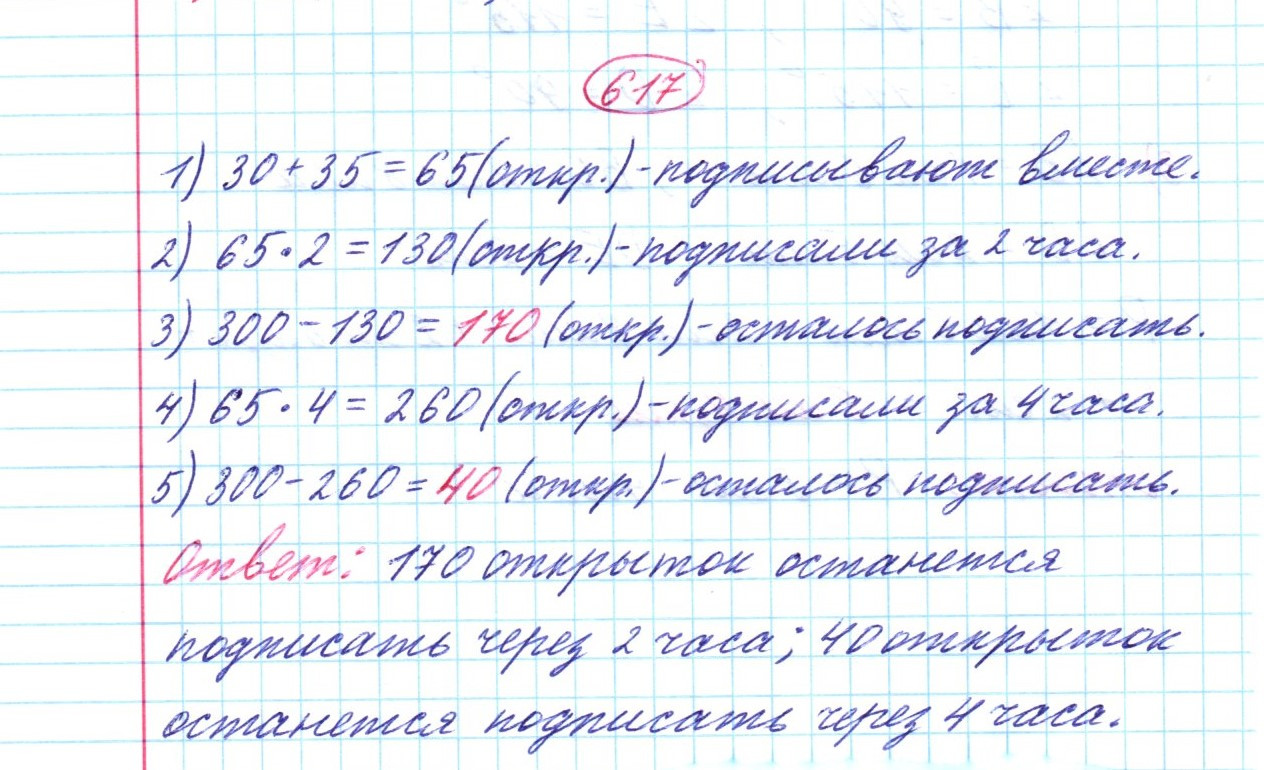 617
1) 30 + 35 = 65 (откр.) - подписывают вместе.
2) 65 · 2 = 130 (откр.) - подписали за 2 часа.
3) 300 - 130 = 170 (откр.) - осталось подписать.
4) 65 · 4 = 260 (откр.) - подписали за 4 часа.
5) 300 - 260 = 40 (откр.) - осталось подписать.
Ответ: 170 открыток останется
подписать через 2 часа; 40 открыток
останется подписать через 4 часа.